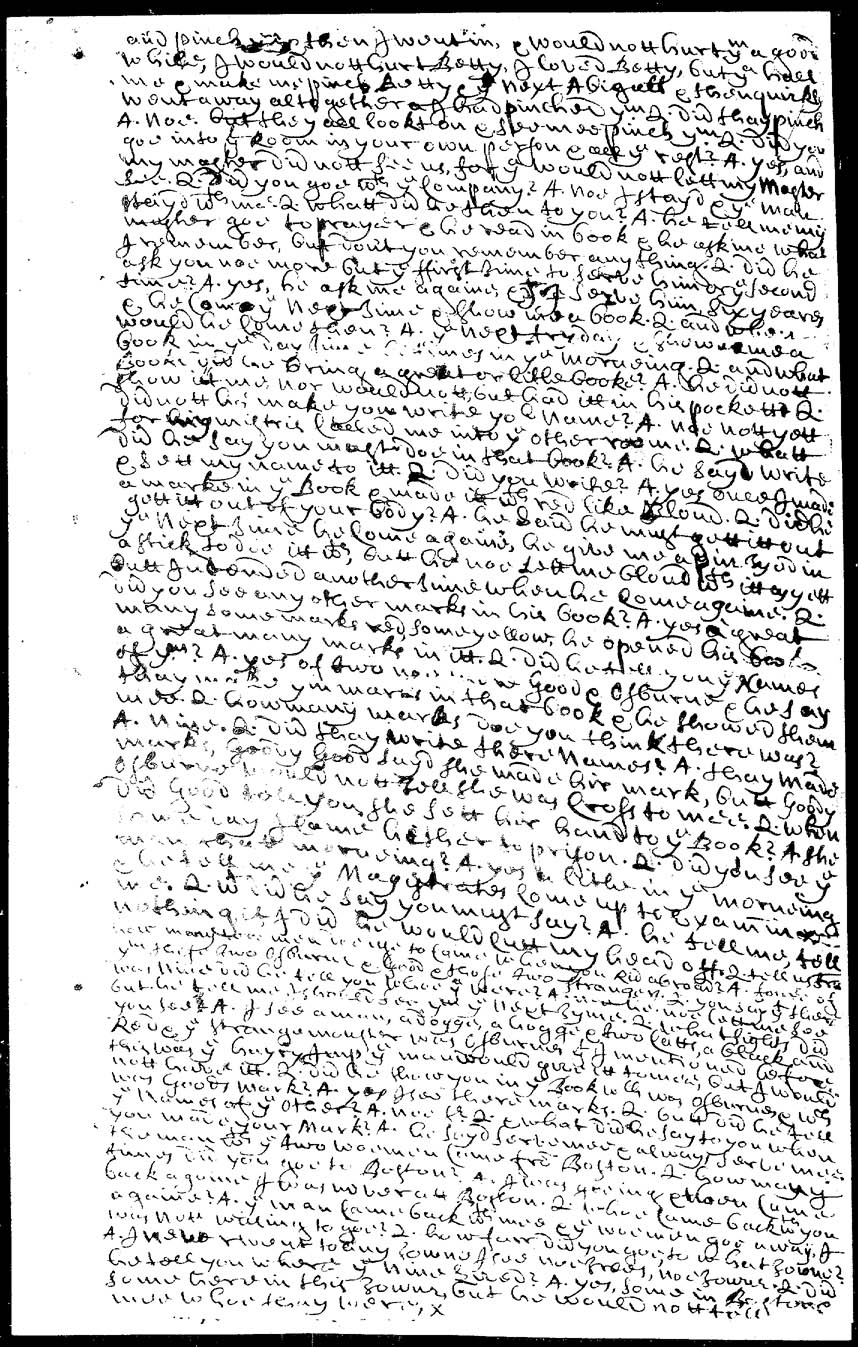 and pinch then I went in, & would nott hurt ym a good
while, I would nott hurt Betty, I loved Betty, but ya hall
me & make me pinch Betty & ye next Abigall & then quickly
went away altogether a I had pinched ym Q. did thay pinch
A. Noe. but they all lookt on & see mee pinch ym. Q. did you
goe into ye Room in your own person & all ye rest? A. yes, and
my master did nott see us, for ya would nott lett my Master
see. Q. did you goe wth ye Company? A. Noe I stayd & ye Man
stayd wth me. Q. whatt did he then to you? A. he tell me my
master goe to prayer & he read in book & he ask me what
I remember, but don't you remember anything. Q. did he
ask you noe more but ye ffirst time to serve him or ye second
time? A. yes, he ask me againe, & yt I serve him, six yeares
& he Com ye Next time & show me a book. Q. and when
would he come then? A. ye next fryday & showed me a
book in ye day time betimes in ye morneing. Q. and what
Booke did he Bring a great or little booke? A. he did nott
show it me nor would nott, but had itt in his pockett. Q.
did nott he make you write yor Name? A. noe nott yett
for my mistris Called me into ye other roome. Q. whatt
did he say you must doe in that book? A. he Sayd write
& sett my name to itt. Q. did you write? A. yes once I made
a marke in ye Book & made itt wth red like Bloud. Q. did he
gett itt out of your Body? A. he said he must gett itt out
ye Next time he Come againe, he give me a pin tyed in
a stick to doe itt wth, butt he noe lett me bloud wth itt as yett
butt Intended another time when he Come againe. Q.
did you see any other marks in his book? A. yes a great
many some marks red some yellow, he opened his booke
a great many marks in itt. Q. did he tell you ye Names
of ym? A. yes of two noe more Good & Osburne & he say
thay make ym marks in that book & he showed them
mee. Q. how many marks doe you think there was?
A. Nine. Q. did thay write there Names? A. thay Made
marks, Goody Good sayd she made hir mark, butt Goody
Osburne would nott tell she was Cross to mee. Q. when
did Good tell you, she sett hir hand to ye Book? A. the
same day I came hither to prison. Q. did you see ye
man thatt morneing? A. yes a litle in ye morneing
& he tell me ye Magistrates Come up to Examine
me. Q. wt did he say you must say? A. he tell me, tell
nothing, if I did he would cutt my head off. Q. tell us tru
how many women use to Come when you Rid abroad? A. foure of
ym these two Osburne & Good & those two strangers. Q. you say yt there
was Nine did he tell you whoe ya were? A. noe he noe lett me See
but he tell me I should see ym ye next tyme. Q. what sights did
you see? A. I see a man, a dogge, a hogge, & two Catts, a black and
Red, & ye strange monster was Osburnes yt I mentioned before
this was ye hayry Imp. ye man would give itt to mee, but I would
nott have itt. Q. did he show you in ye Book wch was Osburnes & wch
was Goods mark? A. yes I see there marks. Q. butt did he tell
ye Names of ye other? A. noe sr. Q. & what did he say to you when
you made your Mark? A. he sayd serve mee & always serve mee
the man wth ye two women came fro Boston. Q. how many
times did you goe to Boston? A. I was goeing & then Came
back againe I was never att Boston. Q. whoe Came back wth you
againe? A. ye man Came back wth mee & ye women goe away, I
was nott willing to goe? Q. how farr did you goe, to what Towne?
A. I never went to any Towne I see noe trees, noe Towne. Q. did
he tell you where ye Nine Lived? A. yes, Some in Boston &
some herein this Towne, but he would nott tell
mee whoe thay were, X